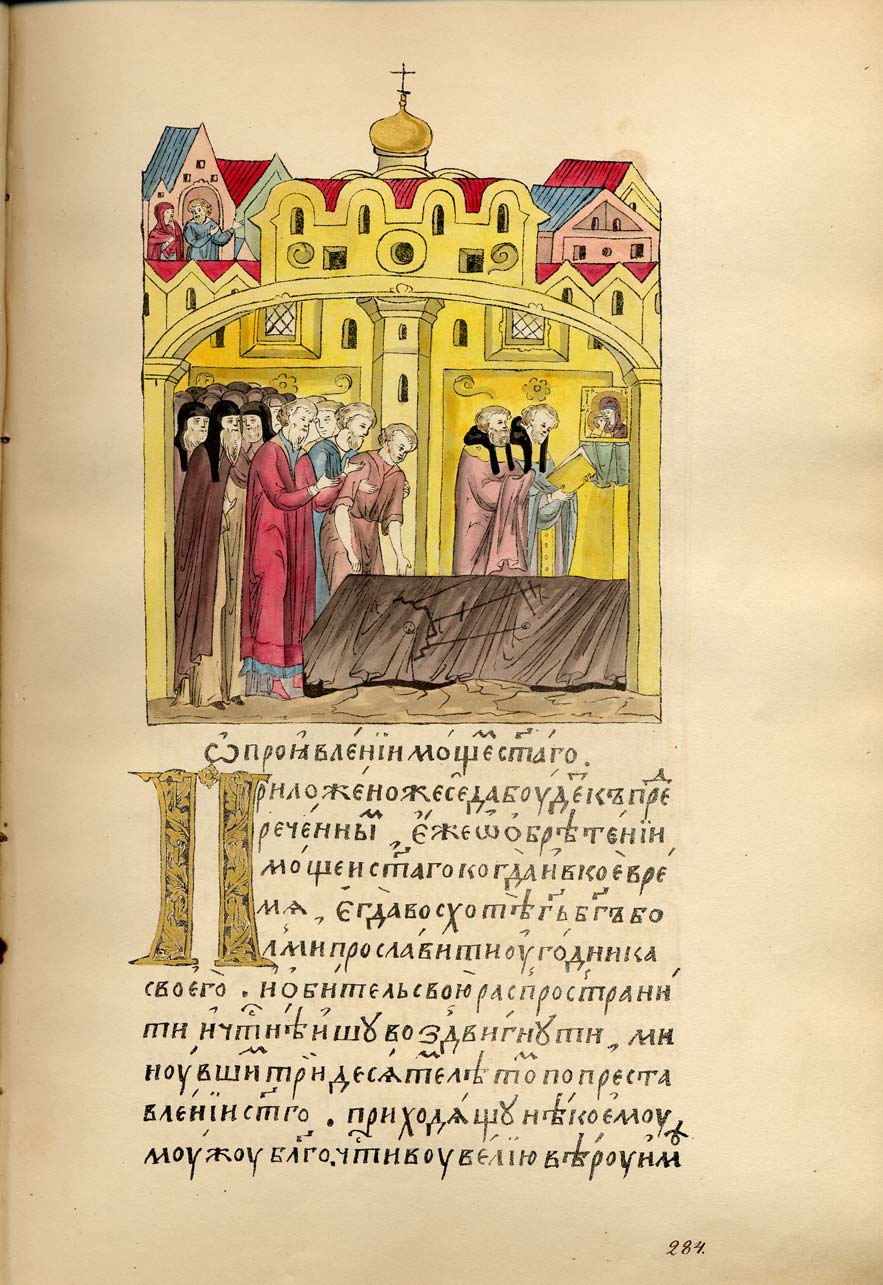 Ѡ проꙗвле́нїи мощє́ ст҃а́го.
Приложе́но же се́ да бꙋ́дє къ прє́д
рече́нны , є҆́же ѡ҆ ѻ҆брѣ́тенїи
моще́и ст҃а́го когда̀ и҆ в коѐ вре́
мѧ , є҆гда̀ восхотѣ̀ гд҃ь бг҃ъ бо
лми просла́вити оу҆го́дника
своего̀ . и҆ ѻ҆би́тель свою̀ распростра́ни
ти и҆ чтⷭ҇нѣ́ишꙋ воздви́гнꙋти , ми
нꙋ́вши три́десѧте лѣ́тѡ по преста
вле́нїи ст҃го . приходѧ́щꙋ нѣ́коемоу
моу́жоу бл҃гоч҇ти́воу ве́лїю вѣ́роу и҆мꙋ́
284.